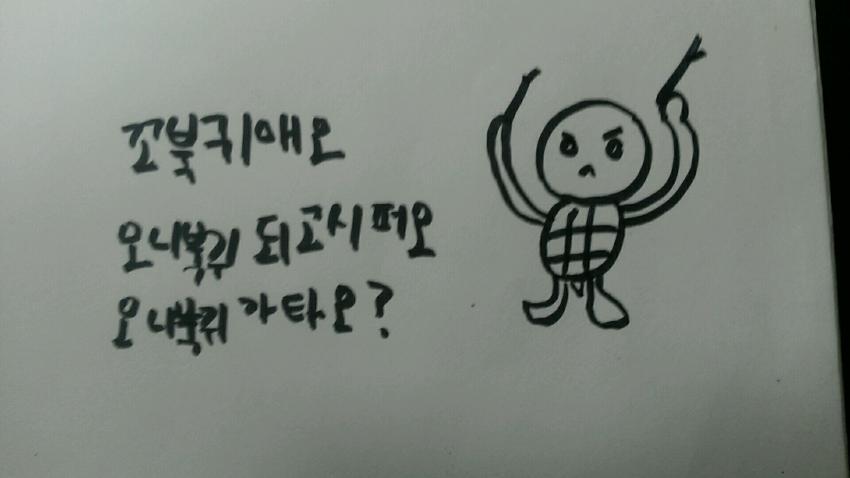 꼬북귀애오
오니뿍뀌 되고시퍼오
오니뿍뀌 가타오?